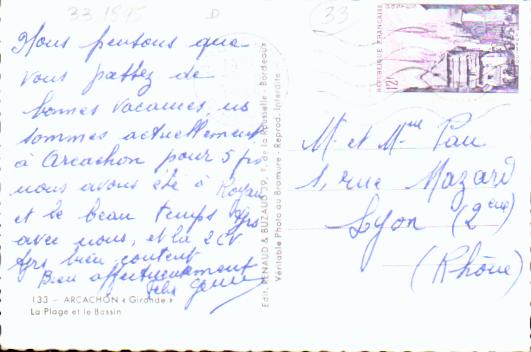 33 1895
D
33
Nous pensons que
vous passez de
bonnes vacances, ns
sommes actuellement
à Arcachon pour 5 jrs
nous avons été à Royan
et le beau temps tjrs
avec nous, et la 2 CV
tjrs bien content
Bien affectueusement
133 - ARCACHON « Gironde »
La Plage et le Bassin
Edit. RENAUD & BUZAUD 79, r. de la Rousselle - Bordeaux
Véritable Photo au Bromure - Reprod. Interdite
REPUBLIQUE FRANÇAISE
POSTES
12F
M. et Mme Pau
1, rue Mazard
Lyon (2ème)
(Rhône)